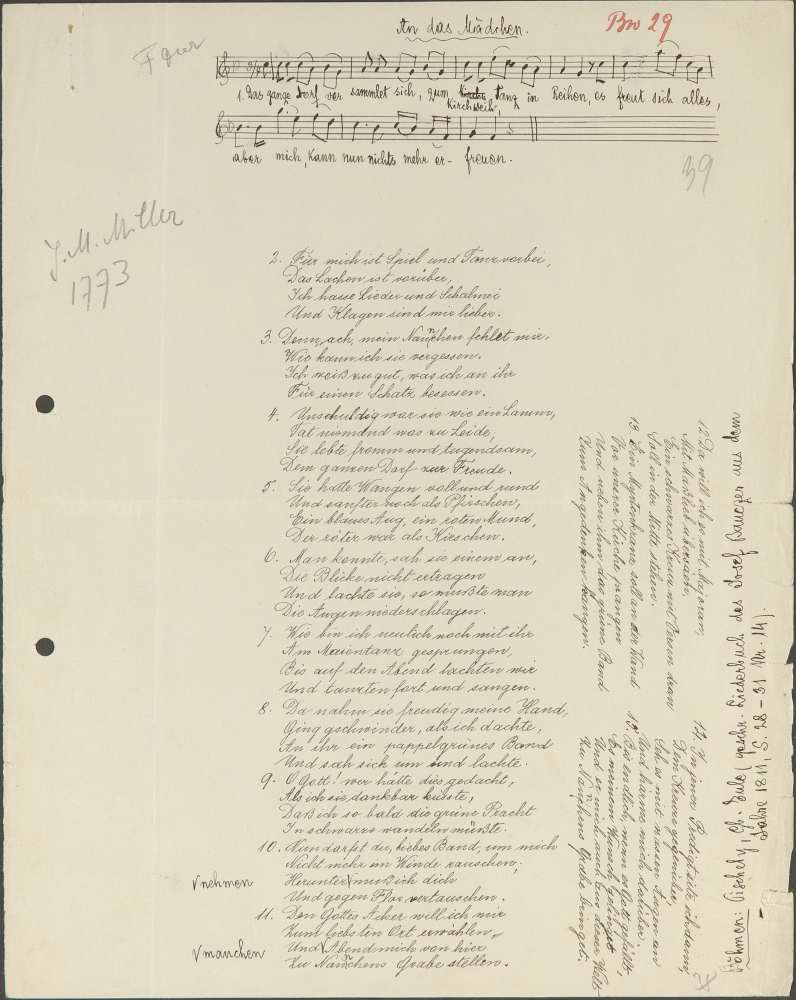 An das Mädchen.
Bw 29
F dur
1. Das ganze Dorf ver sammlet sich, zum Kirchweih, tanz in Reihen, es freut sich alles,
aber mich, kann nun nichts mehr er- freuen.
39
J. M. Miller
1773
2. Für mich ist Spiel und Tanz vorbei,
Das Lachen ist vorüber,
Ich hasse Lieder und Schalmei
Und Klagen sind mir lieber.
3. Denn, ach, mein Nannchen fehlet mir,
Wie kann ich sie vergessen.
Ich weiß zu gut, was ich an ihr
Für einen Schatz besessen.
4. Unschuldig war sie wie ein Lamm,
Tat niemand was zu Leide,
Sie lebte fromm und tugendsam,
Dem ganzen Dorf zur Freude.
5. Sie hatte Wangen voll und rund
Und sanfter noch als Pfirschen,
Ein blaues Aug, ein roten Mund,
Der röter war als Kirschen.
6. Man konnte, sah sie einem an,
Die Blicke nicht ertragen
Und lachte sie, so mußte man
Die Augen niederschlagen.
7. Wie bin ich neulich noch mit ihr
Am Maientanz gesprungen,
Bis auf den Abend lachten wir
Und tanzten fort und sangen.
8. Da nahm sie freudig meine Hand,
Ging gschwinder, als ich dachte,
An ihr ein pappelgrünes Band
Und sah sich um und lachte.
9. O Gott! wer hätte dies gedacht,
Als ich sie dankbar küßte,
Daß ich so bald die grüne Pracht
In schwarze wandeln müßte.
10. Nun darfst du, liebes Band, um mich
Nicht mehr im Winde rauschen,
Herunter √ muß ich dich
√ nehmen
Und gegen Flor vertauschen.
11. Den Gottes Acker will ich mir
Zum liebsten Ort erwählen,
Und √ Abend mich von hier
√ manchen
Zu Nannchens Grabe stellen.
12. Da will ich es mit Majoran,
Mit Maßlieb übersäen,
Ein schwarzes Kreuz mit Versen dran
Soll in der Mitte stehen.
13. Ein Myrtenkranz soll an der Wand
Von unsrer Kirche prangen
Und neben ihm das grüne Band
Zum Angedenken hangen.
14. In jener Predigt sitz ich dann,
Dem Kranze gegenüber
Seh es mit nassen Augen an
Und härme mich darüber.
15. Bis endlich, wenn es Gott gefällt,
Er meinem Wunsch gelinget
Und mich auch aus dieser Welt
Zu Nannchens Grabe bringet.
Böhmen: Tischely, Gb. Eule (geschr. Liederbuch des Josef Dauczer aus dem
Jahre 1811, S. 28 - 31 Nr. 14).